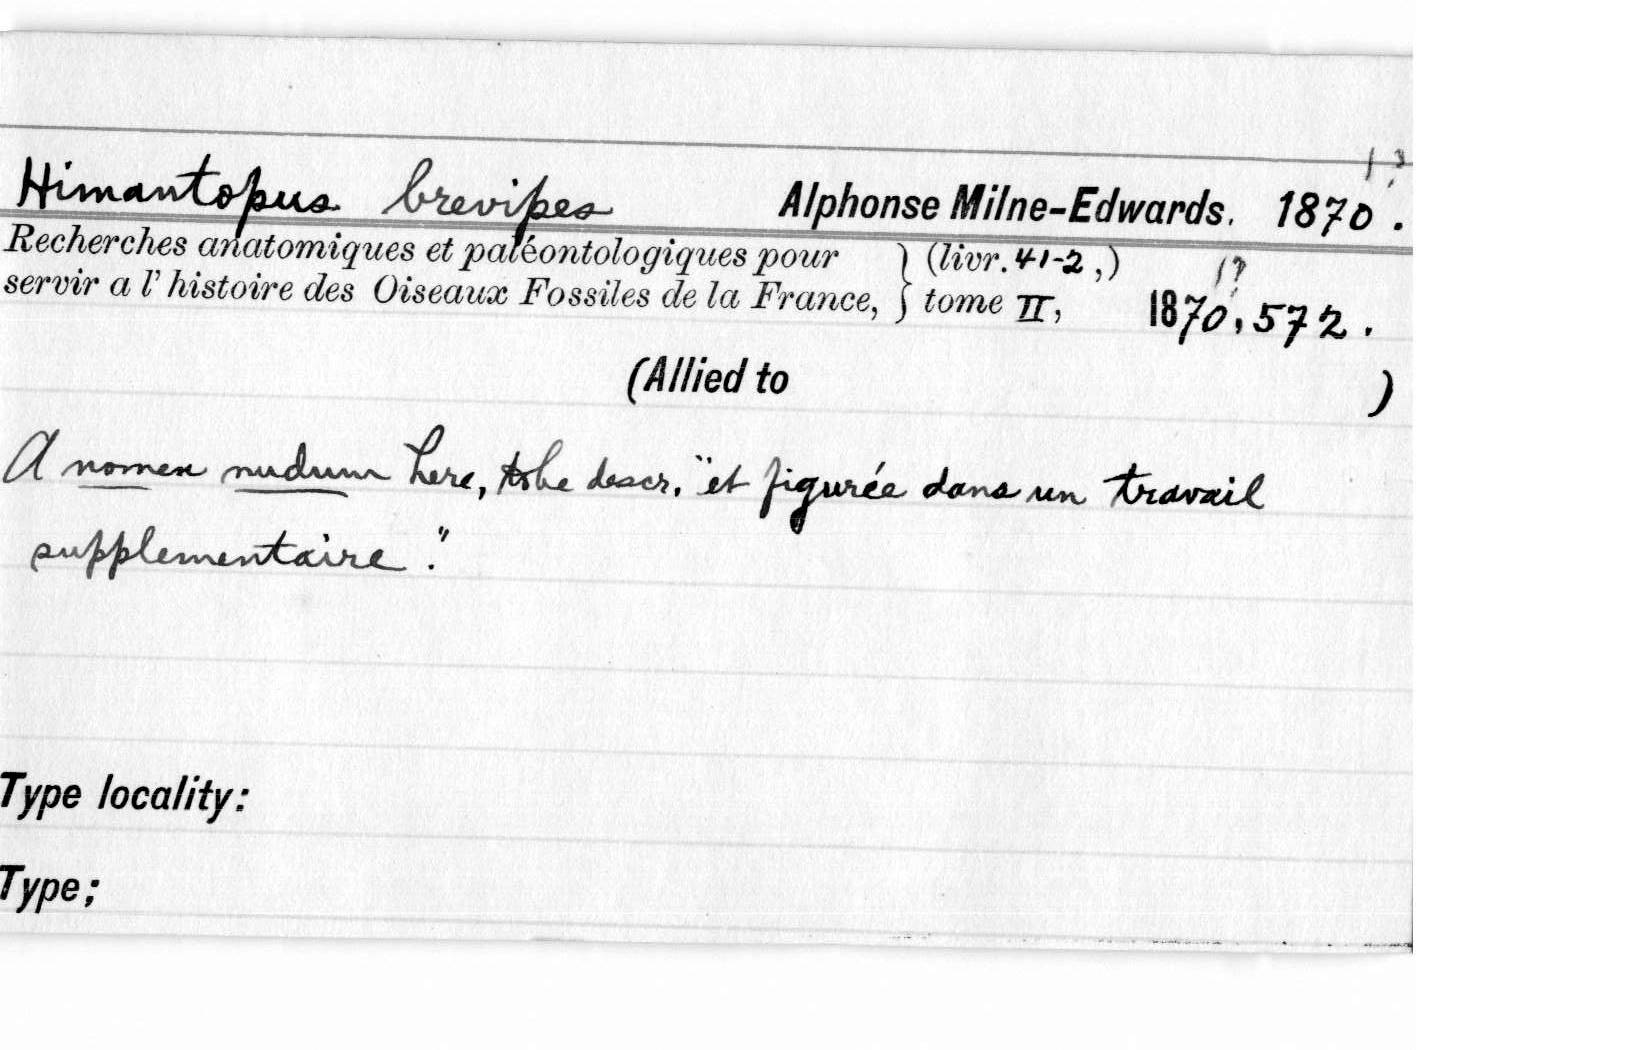 1?
Himantopus brevipes Alphonse Milne-Edwards. 1870.
Recherches anatomiques et paléontologiques pour } (livr. 41-2,) 1?
servir a l' histoire des Oiseaux Fossiles de la France, } tome II, 1870, 572.
(Allied to )
A nomen nudum here, to be descr. "et figurée dans un travail
supplementaire."
Type locality:
Type;